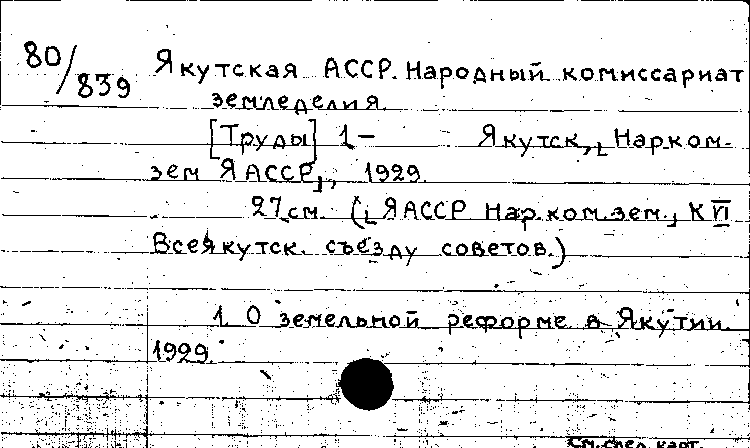 80/839
Якутская АССР. Народный комиссариат
земледелия.
[Труды] 1– Якутск, [Нарком-
зем ЯАССР], 1929.
27 см. ([ЯАССР Нар. ком. зем.] К VI
Всеякутск. съезду советов.)
1. О земельной реформе в Якутии.
1929.
См. спец. карт.